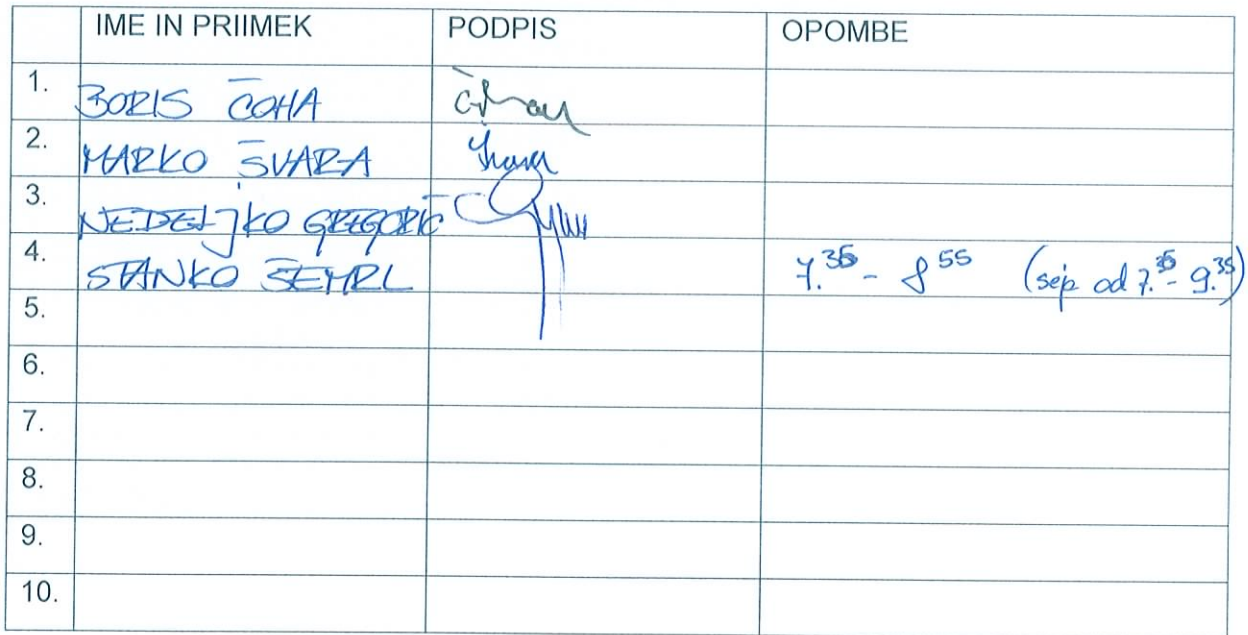 IME IN PRIIMEK PODPIS OPOMBE
1. BORIS ČOHA
2. MARKO ŠVARA
3. NEDELJKO GREGORIČ
4. STANKO ŠEMRL 7.35 - 8 55 (sep od 7.35 - 9.35)
5.
6.
7.
8.
9.
10.